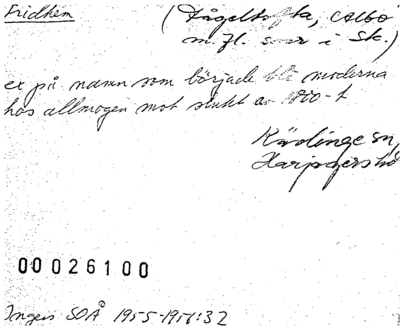 Fridhem (Fågeltofta, Albo
m.fl. snr i Sk.)
ex på namn som började bli moderna
hos allmogen mot slutet av 1800-t
Kävlinge sn,
Harjagers hd
00026100
Ingers SOÅ 1955-1956:32